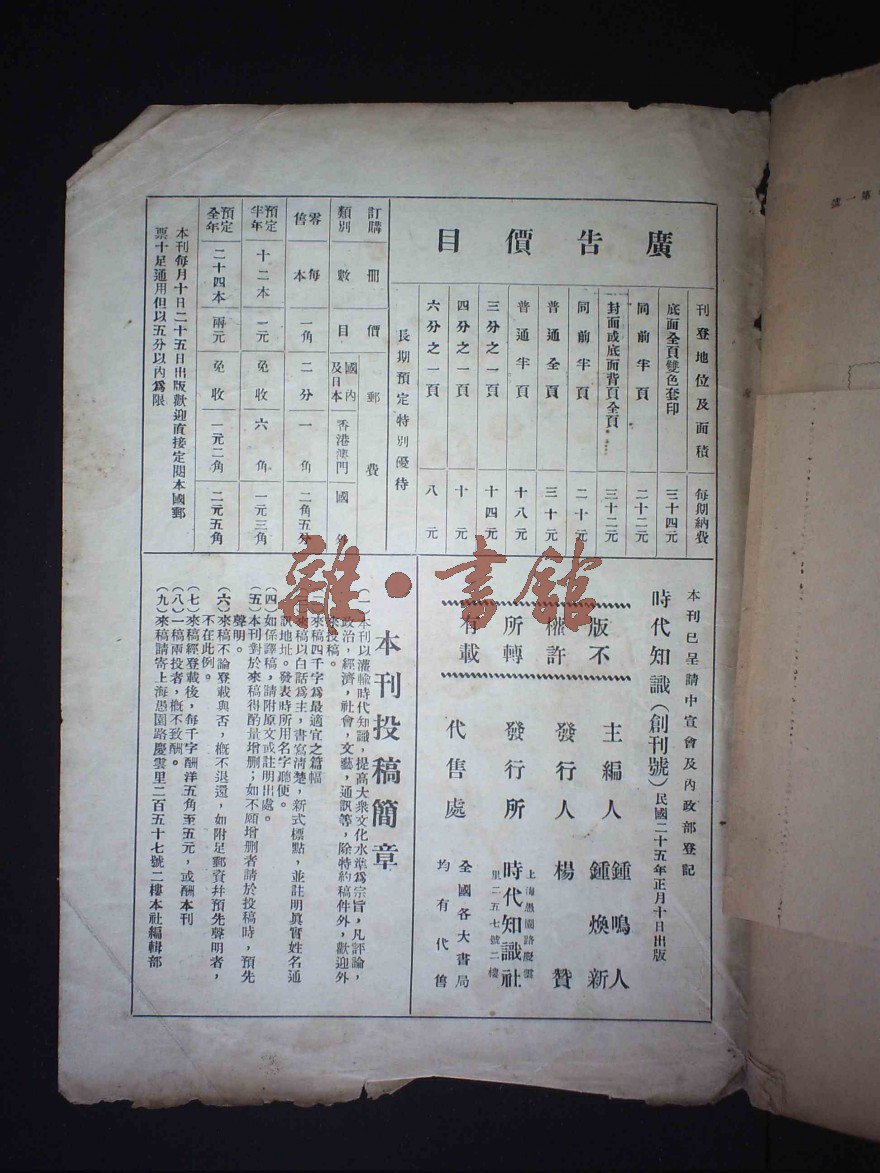 廣告價目
刊登地位及面積 每期納費
底面全頁雙色套印 三十四元
同前半頁 二十二元
封面或底面背頁全頁 三十二元
同前半頁 二十元
普通全頁 三十元
普通半頁 十八元
三分之一頁 十四元
四分之一頁 十元
六分之一頁 八元
長期預定特別優待
訂購類別 冊數 價目 郵費
國內及日本 香港澳門 國外
零售 每本 一角 二分 一角 二角五分
預定半年 十二本 一元 免收 六角 一元三角
預定全年 二十四本 兩元 免收 一元二角 二元五角
本刊每月十日二十五日出版歡迎直接定閱本國郵
票十足通用但以五分以內爲限
本刊已呈請中宣會及內政部登記
時代知識（創刊號）民國二十五年正月十日出版
主編人 鍾鳴人 鍾煥新
發行人 楊贊
發行所 時代知識社
上海愚園路慶雲
里二五七號二樓
代售處 全國各大書局
均有代售
版權所有
不許轉載
本刊投稿簡章
（一）本刊以灌輸時代知識，提高大衆文化水準爲宗旨，凡評論，
政治，經濟，社會，文藝，通訊等，除特約稿件外，歡迎外
來投稿。
來稿四千字爲最適宜之篇幅
來稿以白話爲主，書寫清楚，新式標點，並註明眞實姓名通
訊地址。發表時所用名字聽便。
（四）如係譯稿，請附原文或註明出處。
（五）本刊對於來稿得酌量增删；如不願增删者請於投稿時，預先
聲明。
（六）來稿不論登載與否，槪不退還，如附足郵資幷預先聲明者，
不在此例。
（七）來稿經登載後，每千字酬洋五角至五元，或酬本刊
（八）一稿兩投者，槪不致酬。
（九）來稿請寄上海愚園路慶雲里二百五十七號二樓本社編輯部
雜·書館